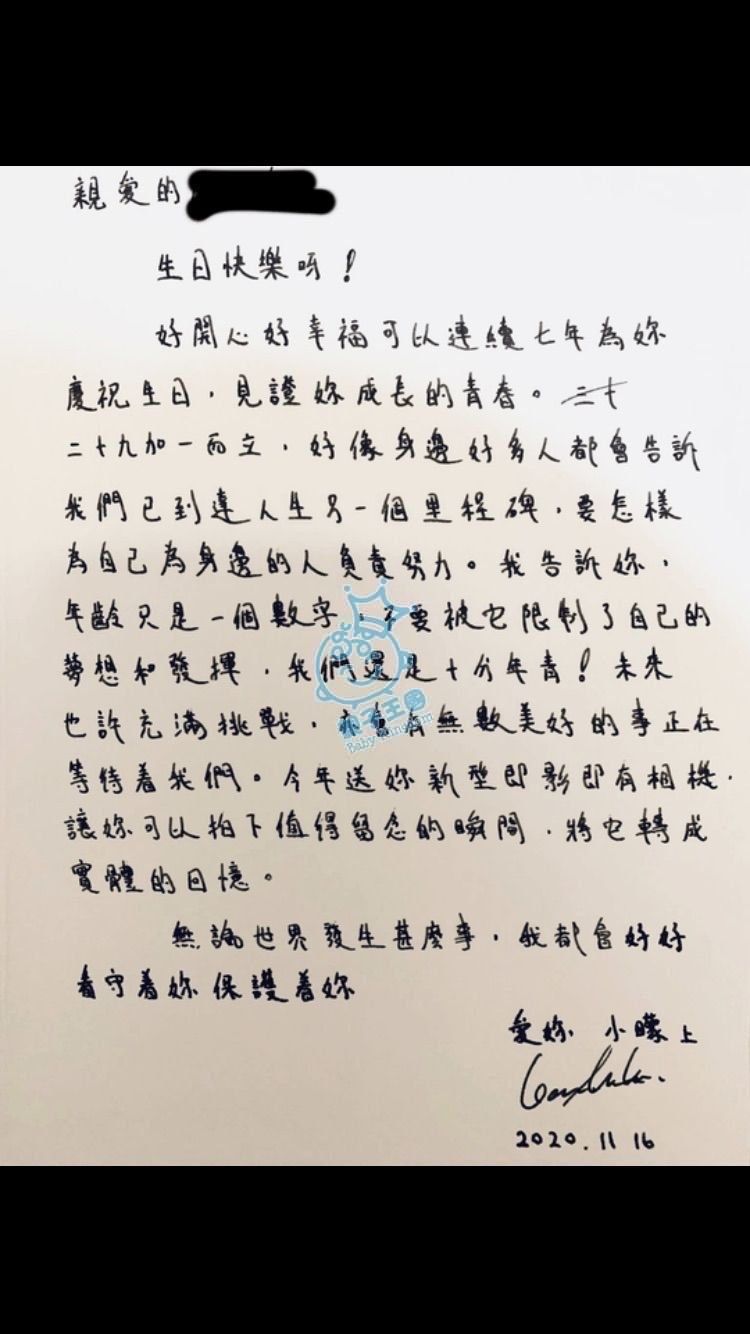 親愛的
生日快樂呀！
好開心好幸福可以連續七年為妳
慶祝生日，見證妳成長的青春。二十
二十九加一而立，好像身邊好多人都會告訴
我們已到達人生另一個里程碑，要怎樣
為自己為身邊的人負責努力。我告訴妳，
年齡只是一個數字，不要被它限制了自己的
夢想和發揮，我們還是十分年青！未來
也許充滿挑戰，亦會有無數美好的事正在
等待着我們。今年送妳新型即影即有相機，
讓妳可以拍下值得留念的瞬間，將它轉成
實體的回憶。
無論世界發生甚麼事，我都會好好
看守着妳 保護着妳
愛妳 小矇上
2020.11 16
親子王國
Baby-Kingdom